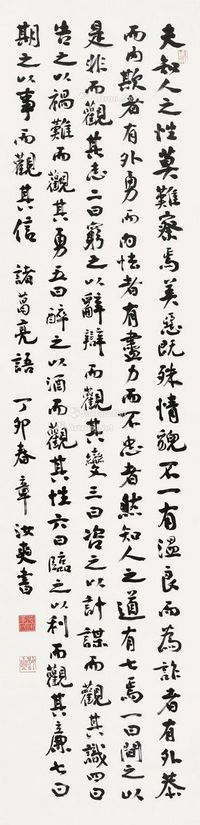 夫知人之性莫難察焉美惡既殊情貌不一有溫良而為詐者有外恭
而內欺者有外勇而內怯者有盡力而不忠者然知人之道有七焉一曰間之以
是非而觀其志二曰窮之以辭辯而觀其變三曰咨之以計謀而觀其識四曰
告之以禍難而觀其勇五曰醉之以酒而觀其性六曰臨之以利而觀其廉七曰
期之以事而觀其信 諸葛亮語 丁卯春章汝奭書